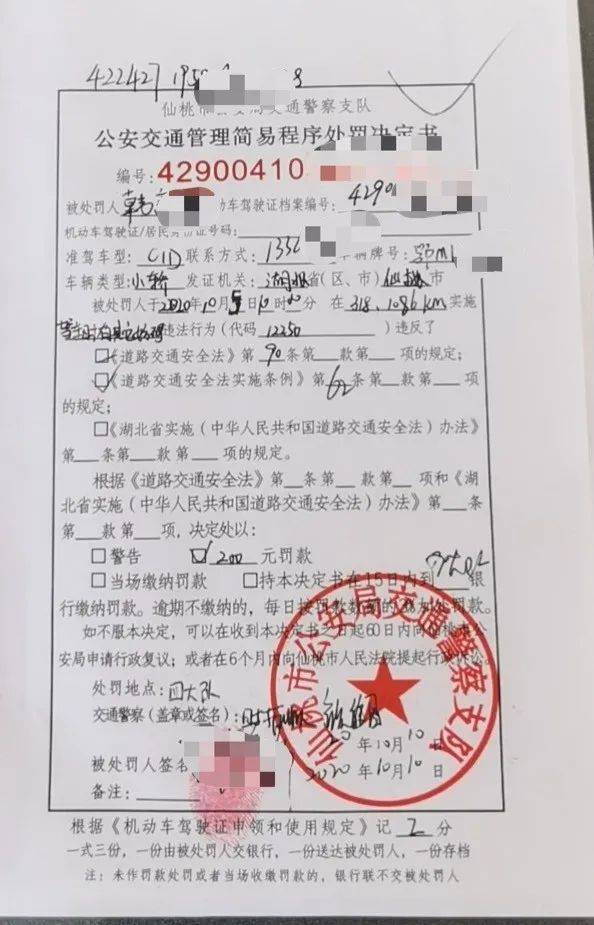 422427 195
仙桃市公安局交通警察支队
公安交通管理简易程序处罚决定书
编号:42900410
被处罚人 韩 动车驾驶证档案编号: 4290
机动车驾驶证/居民身份证号码:
准驾车型: C1D 联系方式: 133 车辆牌号: 鄂M
车辆类型: 小轿 发证机关: 湖北 省(区、市) 仙桃 市
被处罚人于2020年10月5日10时 分 在 318.1086km 实施
违法行为(代码 12250 )违反了
□《道路交通安全法》第 90 条第 款第 项的规定;
☑《道路交通安全法实施条例》第 62 条第 款第 项
的规定;
□《湖北省实施(中华人民共和国道路交通安全法)办法》
第 条第 款第 项的规定。
根据《道路交通安全法》第 条第 款第 项和《湖
北省实施(中华人民共和国道路交通安全法)办法》第 条
第 款第 项,决定处以:
□警告 ☑ 200 元罚款
□当场缴纳罚款 □持本决定书在15日内到 银
行缴纳罚款。逾期不缴纳的,每日按罚款数额的3%加处罚款。
如不服本决定,可以在收到本决定书之日起60日内向仙桃市公
安局申请行政复议;或者在6个月内向仙桃市人民法院提起行政诉讼。
处罚地点: 四大队
交通警察(盖章或签名):
20 年10月10日
被处罚人签名
2020年10月10日
备注:
仙桃市公安局交通警察支队
根据《机动车驾驶证申领和使用规定》记 2 分
一式三份,一份由被处罚人交银行,一份送达被处罚人,一份存档
注:未作罚款处罚或者当场收缴罚款的,银行联不交被处罚人